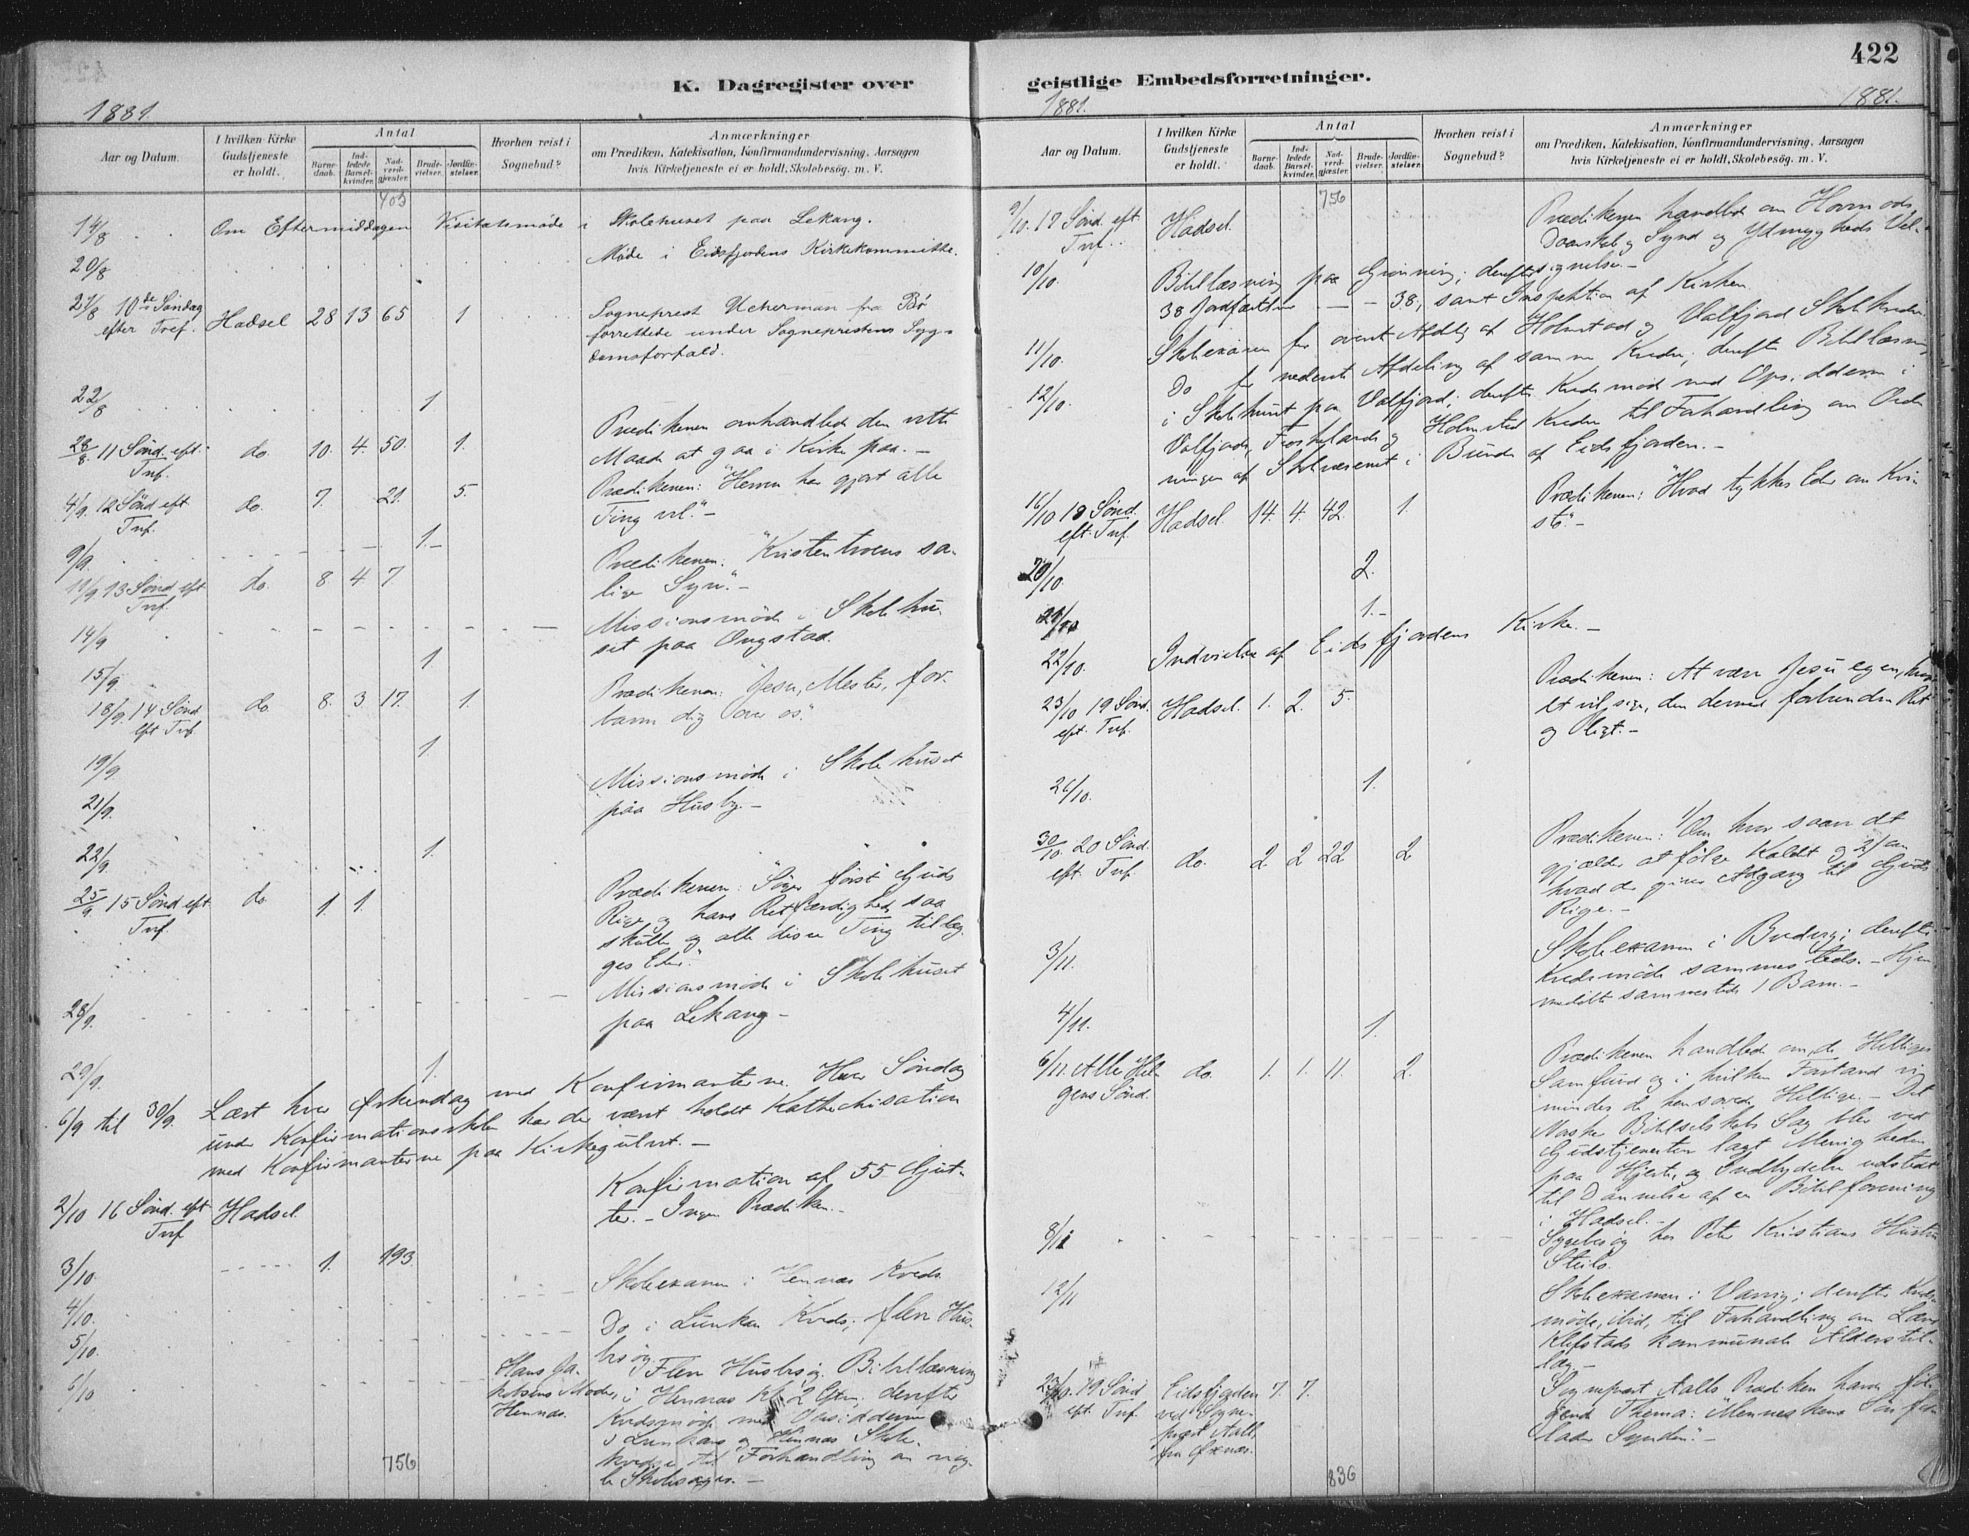 422
K. Dagregister over geistlige Embedsforretninger.
1881. 1881. 1881.
Aar og Datum.
I hvilken Kirke Gudstjeneste er holdt.
Antal
Barne- daab.
Ind- ledede Barsel- kvinder.
Nad- verd- gjæster.
Brude- vielser.
Jordfæ- stelser.
Hvorhen reist i Sognebud?
Anmærkninger
om Prædiken, Katekisation, Konfirmandundervisning, Aarsagen
hvis Kirketjeneste ei er holdt, Skolebesøg. m. V.
403
14/8 Om Eftermiddagen Visitatsmøde i Skolehuset paa Lekang.
20/8 Møde i Eidsfjordens Kirkekommitte.
21/8 10de Søndag Hadsel 28 13 65 1 Sogneprest Ucherman fra Bø
efter Tref. forrettede under Sogneprestens Syg-
domsforfald.
22/8 1
28/8. 11 Sønd. eft. Tref. do. 10. 4. 50. 1. Prædikenen omhandlede den rette
Maade at gaa i Kirke paa. –
4/9. 12 Sønd eft Tref. do. 7. 21. 5. Prædikenen: "Herren har gjort alle
Ting vel." –
9/9. 1. –
11/9. 13 Sønd. eft Tref. do. 8. 4. 7 Prædikenen: "Kristentroens sa-
lige Syn". –
14/9 Missionsmøde i Skolehu-
set paa Ongstad.
15/9. 1
18/9. 14 Sønd eft Tref. do. 8. 3. 17. 1. Prædikenen: Jesu, Mester, for-
barm dig over os".
19/9. 1.
21/9. Missionsmøde i Skolehuset
paa Husby. –
22/9. 1.
25/9. 15 Sønd eft Tref. do 1. 1. Prædikenen: "Søger først Guds
Rige og hans Retfærdighed, saa
skulle og alle disse Ting tillæg-
ges Eder."
28/9. Missionsmøde i Skolehuset
paa Lekang –
29/9. 1.
6/9 til 30/9. Læst hverØrkendag med Konfirmanterne. Hver Søndag
under Konfirmationsskolen har der været holdt Kathechisation
med Konfirmanterne paa Kirkegulvet. –
2/10 16 Sønd. eft Tref Hadsel. Konfirmation af 55 Gjut-
ter. – Ingen Prædiken. –
3/10. 1. 193. Skoleexamen i Hennæs Kreds.
4/10. Do i Lunkan Kreds; flere Hus-
5/10. besøg.
6/10 Hans Ja- Flere Husbesøg. Bibellæsning
kobsens Moder, i Hennæs Kl. 2 Eftm., derefter
Hennæs. Kredsmøde med Opsidderne
i Lunkan og Hennæs Skole-
kredse til Forhandling om
Skolesager. –
756
Aar og Datum.
I hvilken Kirke Gudstjeneste er holdt.
Antal
Barne- daab.
Ind- ledede Barsel- kvinder.
Nad- verd- gjæster.
Brude- vielser.
Jordfæ- stelser.
Hvorhen reist i Sognebud?
Anmærkninger
om Prædiken, Katekisation, Konfirmandundervisning, Aarsagen
hvis Kirketjeneste ei er holdt, Skolebesøg. m. V.
756
9/10. 17 Sønd. eft Tref. Hadsel. Prædikenen handled om Hovmods
Daarskab og Synd og Ydmyghedens Vel-
signelse. –
10/10. Bibellæsning paa Grønning; derefter
38 Jordfæstelser – – 38, samt Inspektion af Kirken.
11/10. Skoleexamen for øverste Afdeling af Holmstad og Valfjord Skolekredse.
12/10. Do for nederste Afdeling af samme Kredse; derefter Bibellæsning
i Skolehuset paa Valfjord; derefter Kredsmøde med Opsidderne i
Valfjords, og Holmstad Kredse til Forhandling om Ord-
ningen af Skolevæsenet i Bunden af Eidsfjorden. –
16/10 18 Sønd. eft. Tref. Hadsel. 14. 4. 42. 1. Prædikenen: "Hvad tykkes Eder om Kri-
sto". –
20/10. 2.
1. –
22/10. Indvielse af Eidsfjordens Kirke. –
23/10 19 Sønd. eft. Tref. Hadsel. 1. 2. 5. Prædikenen: At være Jesu egen, hvad
det vil sige, den dermed forbundne Ret
og Pligt. –
26/10. 1.
30/10. 20 Sønd eft Tref. do. 2. 2 22 2 Prædikenen: 1/ Om hvorsaan det
gjælder at følge Kaldet og 2/ om
hvad der giver Adgang til Guds
Rige. –
3/11. Skoleexamen i ; derefter
Kredsmøde sammesteds. – Hjem-
medøbte sammesteds 1 Barn. –
4/11. 1.
6/11. Alle Hel- gens Sønd. do. 1. 1. 11. 2. Prædikenen handled om de Helliges
Samfund og i hvilken Forstand vi
mindes de hensovede Hellige. – Det
Norske Bibelselskabs Sag blev ved
Gudstjenesten lagt Menigheden
paa Hjerte, og Indbydelse udstedt
til Dannelse af en Bibelforening
i Hadsel. –
8/11 Sygebesøg hos Peter Kristians Hustru
Steilo.
12/11 Skoleexamen i ; derefter Kreds-
møde, ibid, til Forhandling om Lærer
Klefstads kommunale Alderstil-
læg. –
23/10. 19 Sønd eft. Tref. Eidsfjorden ved Sogn- prest Aall fra Øxnæs. 7. 7. Sogneprest Aalls Prædiken havde føl-
gende Thema: "Menneskens Søn for-
lader Synden". –
836